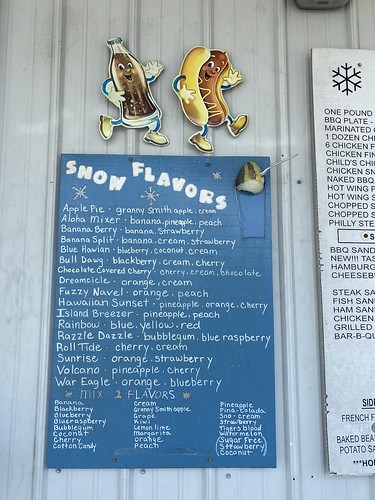 SNOW FLAVORS
Apple Pie - granny smith apple, cream
Aloha Mixer - banana, pineapple, peach
Banana Berry - banana, strawberry
Banana Split - banana, cream, strawberry
Blue Hawiian - blueberry, coconut, cream
Bull Dawg - blackberry, cream, cherry
Chocolate Covered Cherry - cherry, cream, chocolate
Dreamcicle - orange, cream
Fuzzy Navel - orange, peach
Hawaiian Sunset - pineapple, orange, cherry
Island Breezer - pineapple, peach
Rainbow - blue, yellow, red
Razzle Dazzle - bubblegum, blue raspberry
Roll Tide - cherry, cream
Sunrise - orange, strawberry
Volcano - pineapple, cherry
War Eagle - orange, blueberry
* MIX 2 FLAVORS *
Banana
Blackberry
Blueberry
Blueraspberry
Bubblegum
Coconut
Cherry
Cotton Candy
Cream
Granny Smith apple
Grape
Kiwi
Lemon lime
Margarita
orange
Peach
Pineapple
Pina-colada
Sno-cream
Strawberry
Tigers blood
Watermelon
(Sugar Free)
(Strawberry)
Coconut
ONE POUND
BBQ PLATE -
MARINATED
1 DOZEN
6 CHICKEN
CHICKEN
CHILD'S
CHICKEN
NAKED BBQ
HOT WING
HOT WINGS
CHOPPED
CHOPPED
PHILLY STE
BBQ SAND
NEW!!!
HAMBURG
CHEESEBU
STEAK SA
FISH SAN
HAM SAN
CHICKEN
GRILLED
BAR-B-Q
SID
FRENCH F
BAKED BEA
POTATO SA